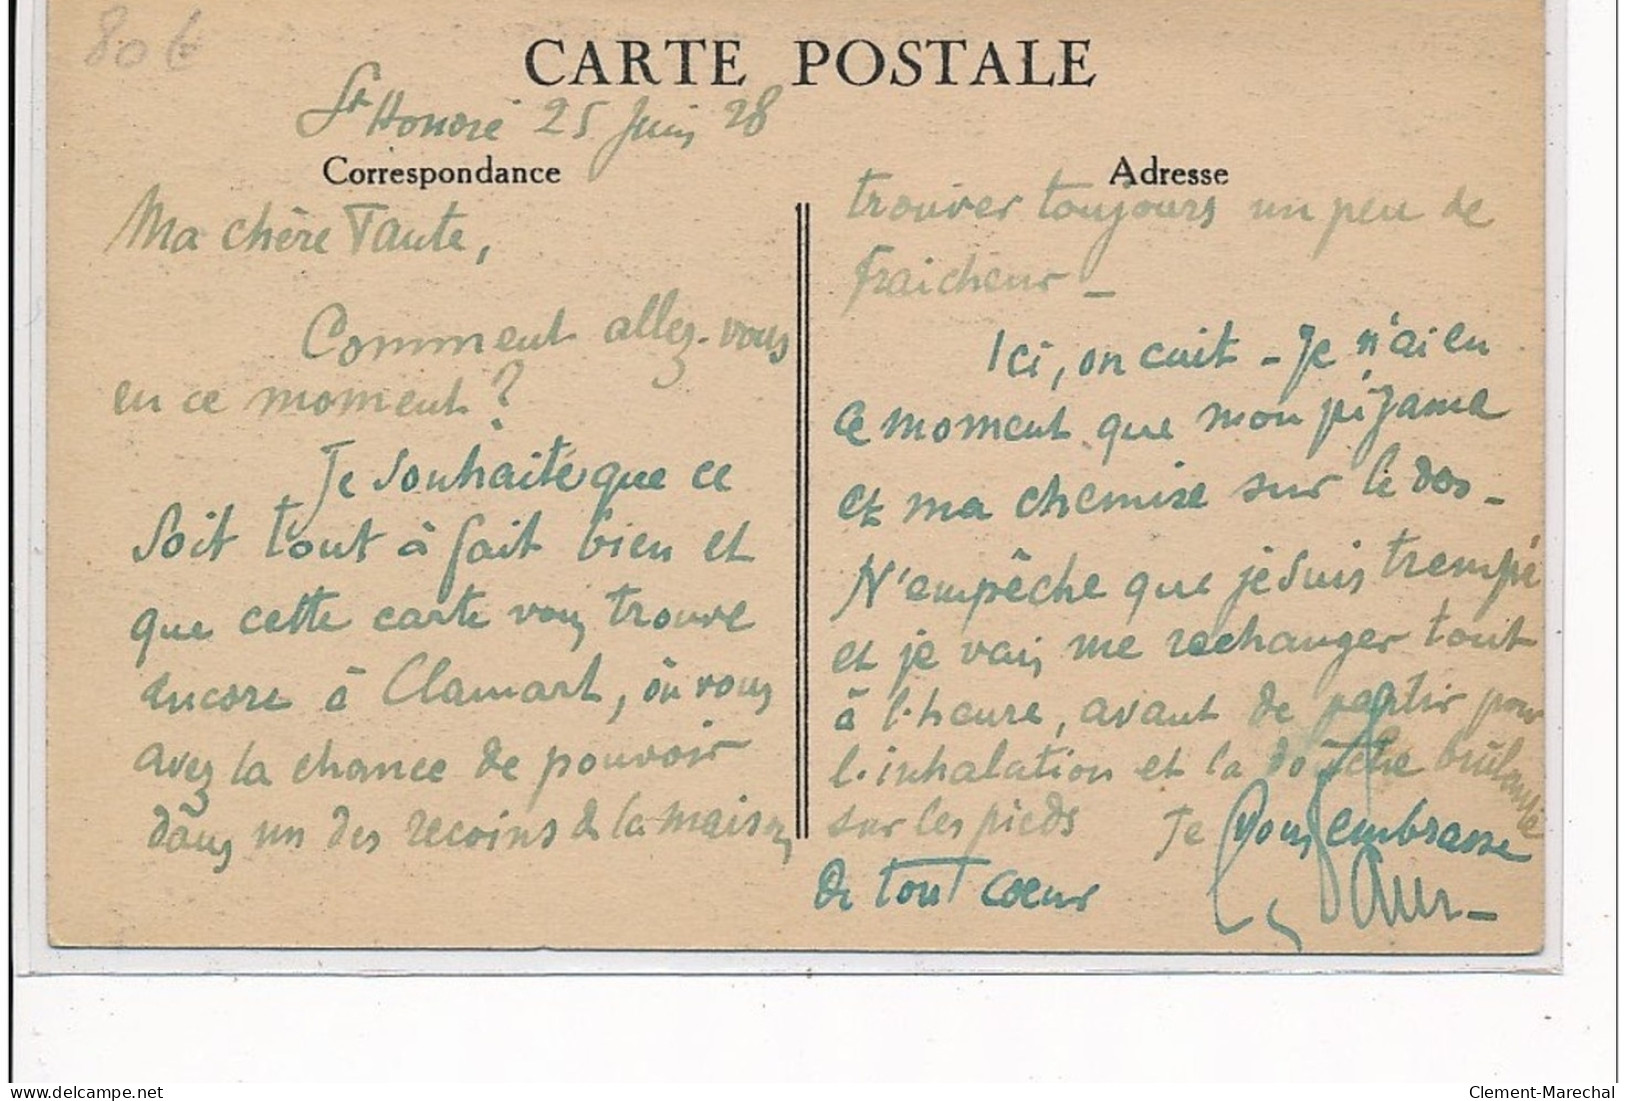 80 €
CARTE POSTALE
St Honoré 25 Juin 28
Correspondance
Ma chère Tante,
Comment allez-vous
en ce moment ?
Je souhaite que ce
soit tout à fait bien et
que cette carte vous trouve
encore à Clamart, où vous
avez la chance de pouvoir
dans un des recoins de la maison
Adresse
trouver toujours un peu de
fraicheur -
Ici, on cuit - Je n'ai en
ce moment que mon pijama
et ma chemise sur le dos -
N'empêche que je suis trempé
et je vais me rechanger tout
à l'heure, avant de partir pour
l'inhalation et la douche brûlante
sur les pieds Je vous embrasse
de tout coeur
Clement-Marechal
delcampe.net